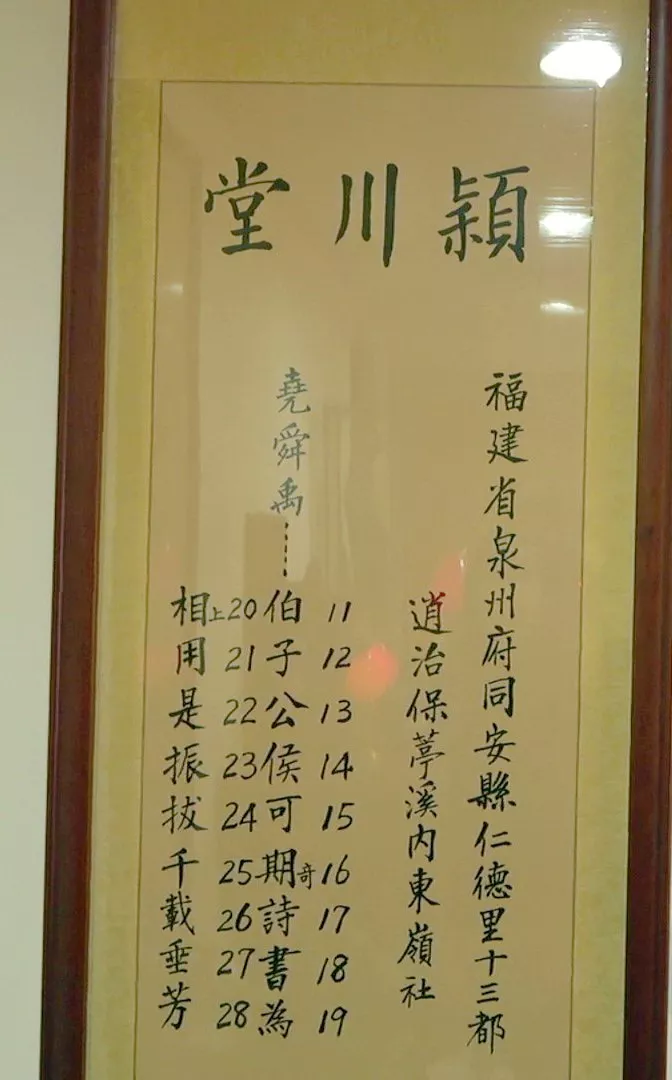 潁川堂
福建省泉州府同安縣仁德里十三都
逍治保葶溪內東嶺社
堯舜禹……
11 伯
12 子
13 公
14 侯
15 可
16 期奇
17 詩
18 書
19 為
20 相上
21 用
22 是
23 振
24 拔
25 千
26 載
27 垂
28 芳